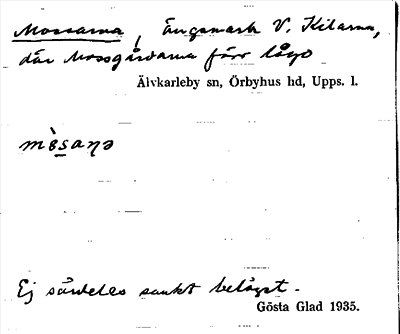 Mossarna, Ängsmark V. Kilarna,
där Mossgårdarna förr lågo
Älvkarleby sn, Örbyhus hd, Upps. l.
mòsaṇə
Ej särdeles sankt beläget.
Gösta Glad 1935.